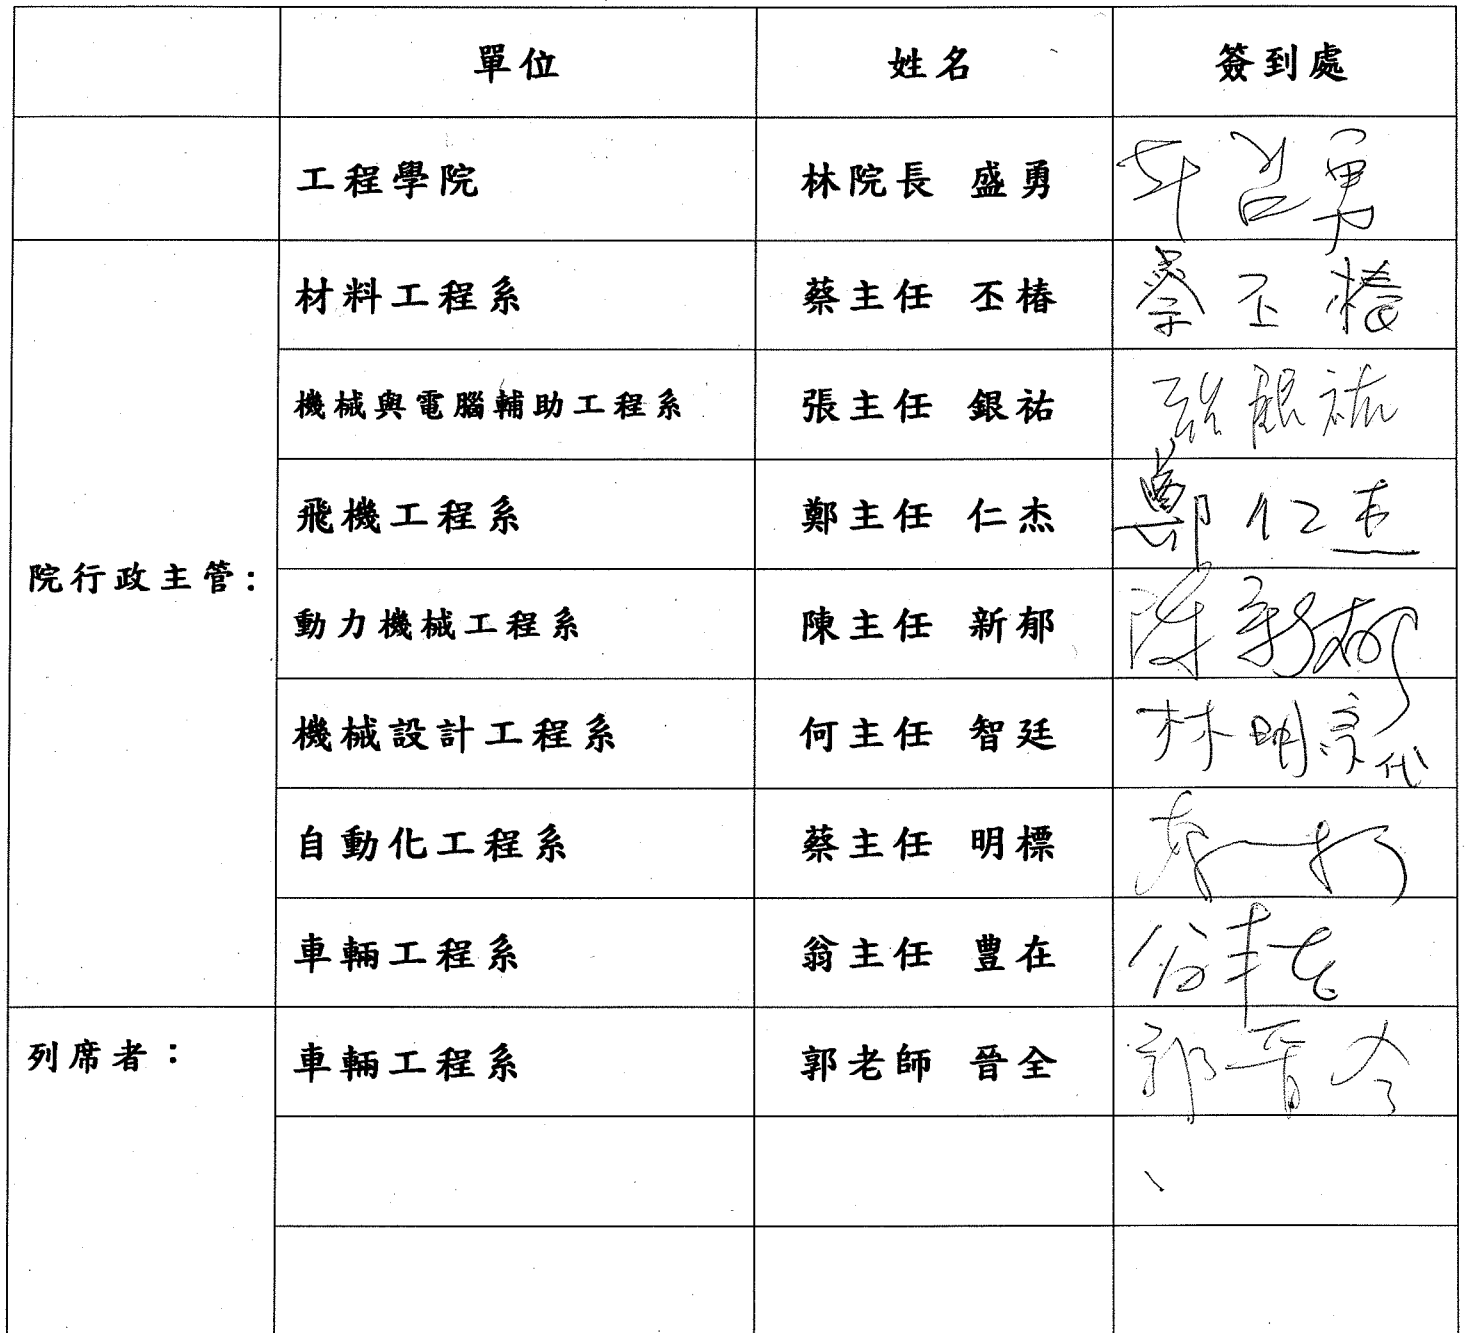 單位 姓名 簽到處
工程學院 林院長 盛勇
材料工程系 蔡主任 丕椿 蔡丕椿
機械與電腦輔助工程系 張主任 銀祐 張銀祐
飛機工程系 鄭主任 仁杰 鄭仁杰
院行政主管:
動力機械工程系 陳主任 新郁 陳新郁
機械設計工程系 何主任 智廷 林明宗代
自動化工程系 蔡主任 明標
車輛工程系 翁主任 豊在
列席者:
車輛工程系 郭老師 晉全 郭晉全